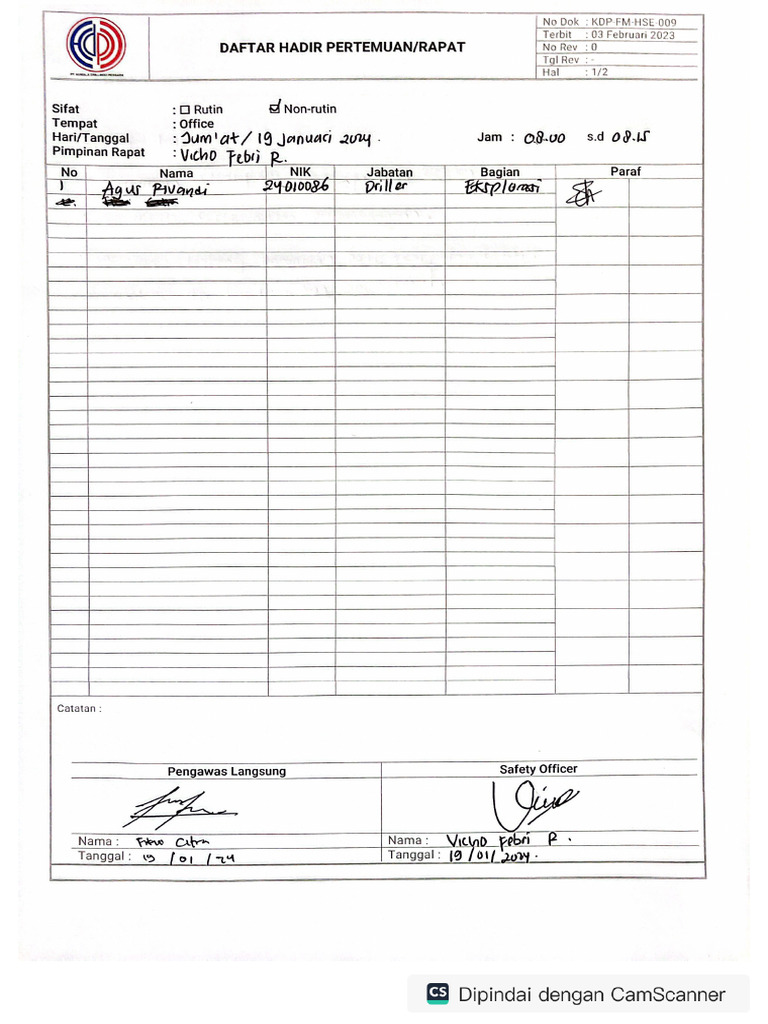 No Dok : KDP-FM-HSE-009
DAFTAR HADIR PERTEMUAN/RAPAT
Terbit : 03 Februari 2023
No Rev : 0
Tgl Rev : -
Hal : 1/2
Sifat : ☐ Rutin ☑ Non-rutin
Tempat : Office
Hari/Tanggal : Jum'at / 19 Januari 2024. Jam : 08.00 s.d 08.15
Pimpinan Rapat : Vicho Febri R.
No Nama NIK Jabatan Bagian Paraf
1 Agus Rivandi 24010086 Driller Eksplorasi
Catatan :
Pengawas Langsung Safety Officer
Nama : Nama : Vicho Febri R.
Tanggal : 19 / 01 / 24 Tanggal : 19 / 01 / 2024.
CS Dipindai dengan CamScanner